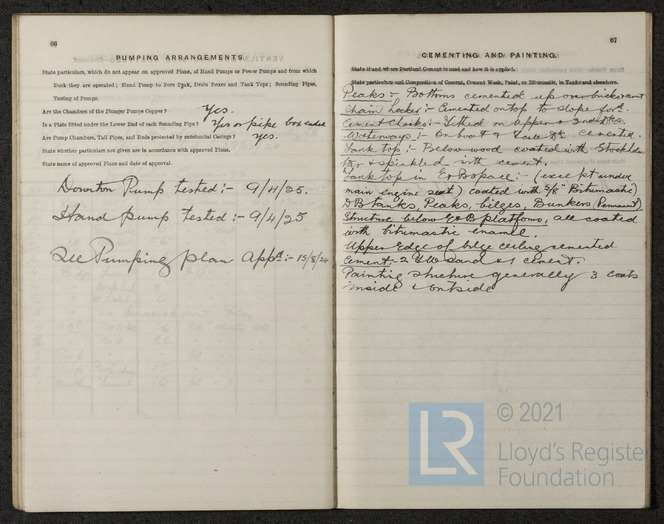 66
PUMPING ARRANGEMENTS.
State particulars, which do not appear on approved Plans, of Hand Pumps or Power Pumps and from which
Deck they are operated; Hand Pump to Fore Peak, Drain Boxes and Tank Tops; Sounding Pipes,
Testing of Pumps.
Are the Chambers of the Plunger Pumps Copper? Yes.
Is a Plate fitted under the Lower End of each Sounding Pipe? Yes or pipe box ended
Are Pump Chambers, Tail Pipes, and Rods protected by substantial Casings? Yes.
State whether particulars not given are in accordance with approved Plans.
State name of approved Plans and date of approval.
Downton Pump tested :- 9/4/25.
Hand pump tested :- 9/4/25
See Pumping plan Appd :- 15/8/24
67
CEMENTING AND PAINTING.
State if and where Portland Cement is used and how it is applied.
State particulars and Composition of Cement, Cement Wash, Paint, or Bitumastic, in Tanks and elsewhere.
Peaks :- Bottoms cemented up over
Chain Locker :- Cemented on top to slope ford.
Cement Chocks :- fitted on Upper & 2nd dks.
Waterways :- On boat & dk cemented.
Tank top :- Below wood coated with Stockholm
tar & sprinkled with cement.
Tank top in E & B space :- (except under
main engine seat) coated with 5/8" Bitumastic
D B tanks, Peaks, bilges, Bunkers (Permanent)
Structure below E & B platforms, all coated
with bitumastic enamel.
Upper Edge of bilge ceiling cemented
Cement :- 2 sand & 1 cement.
Painting structure generally 3 coats
inside & outside
LR
© 2021
Lloyd's Register
Foundation